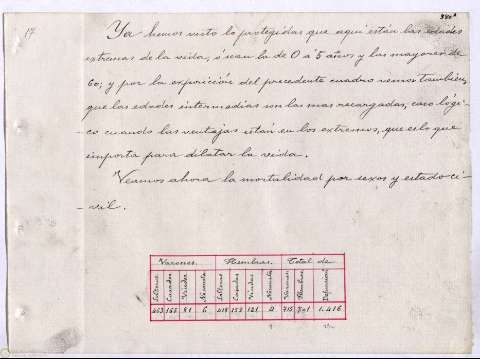 17
Ya hemos visto lo protegidas que aqui están las edades
extremas de la vida, ó sean la de 0 á 5 años y las mayores de
60; y por la exposición del precedente cuadro vemos tambien,
que las edades intermedias son las mas recargadas, caso lógi-
co cuando las ventajas están en los extremos, que es lo que
importa para dilatar la vida.
Veamos ahora la mortalidad por sexos y estado ci-
-vil.
Varones. Hembras. Total de
Solteros Casados Viudos No consta Solteras Casadas Viudas No consta Varones Hembras Defunción
463 165 81 6 418 158 121 4 715 701 1.416